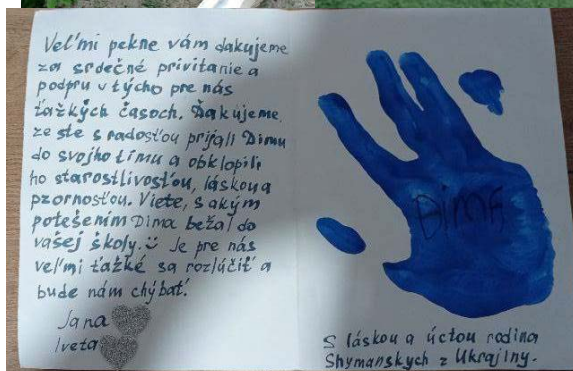 Veľmi pekne vám ďakujeme
za srdečné privitanie a
podpru v týcho pre nás
ťažkých časoch. Ďakujeme,
že ste s radosťou prijali Dimu
do svojho tímu a obklopili
ho starostlivosťou, láskou a
pzornosťou. Viete, s akým
potešením Dima bežal do
vašej školy. Je pre nás
veľmi ťažké sa rozlúčiť a
bude nám chýbať.
Jana
Iveta
DimA
S láskou a úctou rodina
Shymanskych z Ukrajiny.